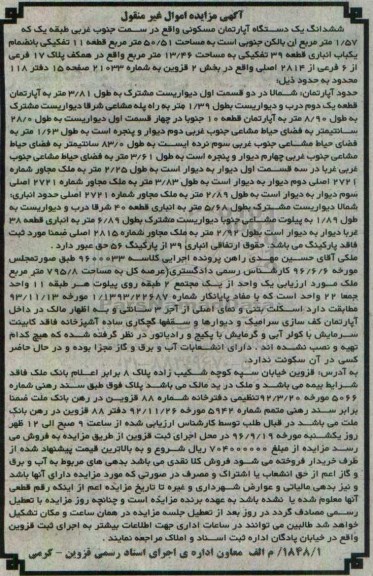 آگهی مزایده اموال غیر منقول
ششدانگ یک دستگاه آپارتمان مسکونی واقع در سمت جنوب غربی طبقه یک که
۱/۵۷ متر مربع آن بالکن جنوبی است به مساحت ۵۰/۵۱ متر مربع قطعه ۱۱ تفکیکی بانضمام
یکباب انباری قطعه ۳۹ تفکیکی به مساحت ۱۳/۴۶ متر مربع واقع در همکف پلاک ۱۷ فرعی
از ۶ فرعی از ۲۸۱۴ اصلی واقع در بخش ۲ قزوین به شماره ۲۱۰۳۳ صفحه ۱۵ دفتر ۱۱۸
محدود به حدود ذیل:
حدود آپارتمان: شمالا در دو قسمت اول دیواریست مشترک به طول ۳/۸۱ متر به آپارتمان
قطعه یک دوم درب و دیواریست بطول ۱/۳۹ متر به راه پله مشاعی شرقا دیواریست مشترک
به طول ۸/۹۰ متر به آپارتمان قطعه ۱۰ جنوبا در چهار قسمت اول دیواریست به طول ۲۸/۰
سانتیمتر به فضای حیاط مشاعی جنوب غربی دوم دیوار و پنجره است به طول ۱/۶۳ متر به
فضای حیاط مشاعی جنوب غربی سوم نرده ایست به طول ۸۳/۰ سانتیمتر به فضای حیاط
مشاعی جنوب غربی چهارم دیوار و پنجره است به طول ۳/۶۱ متر به فضای حیاط مشاعی جنوب
غربی غربا در سه قسمت اول دیوار به دیوار است به طول ۲/۲۵ متر به ملک مجاور شماره
۲۷۲۱ اصلی دوم دیوار به دیوار است به طول ۳/۸۳ متر به ملک مجاور شماره ۲۷۲۱ اصلی
سوم دیوار به دیوار است به طول ۲/۸۹ متر به ملک مجاور شماره ۲۷۲۱ اصلی حدود انباری:
شمالا دیواریست مشترک بطول ۵/۶۸ متر به انباری قطعه ۴۰ شرقا درب و دیواریست به
طول ۱/۸۹ به پیلوت مشاعی جنوبا دیواریست مشترک بطول ۶/۸۹ متر به انباری قطعه ۳۸
غربا دیوار به دیوار است بطول ۲/۹۲ متر به ملک مجاور شماره ۲۸۱۵ اصلی ضمنا مورد ثبت
فاقد پارکینگ می باشد. حقوق ارتفاقی انباری ۳۹ از پارکینگ ۵۶ حق عبور دارد.
ملکی آقای حسین مهدی راهن پرونده اجرایی کلاسه ۹۶۰۰۰۳۳ طبق صورتمجلس
مورخه ۹۶/۶/۶ کارشناس رسمی دادگستری(عرصه کل به مساحت ۷۹۵/۸ متر مربع
ملک مورد ارزیابی یک واحد از یک مجتمع ۲ طبقه روی پیلوت هر طبقه ۱۱ واحد
جمعا ۲۲ واحد است که با مفاد پایانکار شماره ۱/۱۳۹۳/۲۲۶۸۷ مورخه ۹۳/۱۱/۱۳
مطابقت دارد اسکلت بتنی و نمای اصلی از آجر ۳ سانتی و به اظهار مالک در داخل
آپارتمان کف سازی سرامیک و دیوارها و سقفها گچکاری ساده آشپزخانه فاقد کابینت
سرمایش با کولر آبی و گرمایش با پکیج و رادیاتور در نظر گرفته شده که هیچ کدام
تهیه و نصب نشده اند، دارای انشعابات آب و برق و گاز مجزا بوده و در حال حاضر
کسی در آن سکونت ندارد.
به آدرس: قزوین خیابان سپه کوچه شکیب زاده پلاک ۸ برابر اعلام بانک ملک فاقد
شرایط بیمه می باشد و ملک در ید مالک می باشد پلاک فوق طبق سند رهنی شماره
۵۰۶۶ مورخه ۹۲/۳/۲۰ تنظیمی دفترخانه شماره ۸۸ قزوین در رهن بانک ملت ضمنا
برابر سند رهنی متمم شماره ۵۹۴۲ مورخه ۹۲/۱۱/۲۶ دفتر ۸۸ قزوین در رهن بانک
ملت می باشد در قبال طلب توسط کارشناس ارزیابی شده از ساعت ۹ صبح الی ۱۲ ظهر
روز یکشنبه مورخه ۹۶/۹/۱۹ در محل اجرای ثبت قزوین از طریق مزایده به فروش می
رسد مزایده از مبلغ ۷۰۴۰۰۰۰۰۰ ریال شروع و به بالاترین قیمت پیشنهاد شده از
طرف خریدار فروخته می شود فروش کلا نقدی می باشد بدهی های مربوط به آب و برق
و گاز اعم از حق انشعاب یا اشتراک و مصرف در صورتی که مورد مزایده دارای آنها باشد
و نیز بدهی مالیاتی و عوارض شهرداری و غیره تا تاریخ مزایده اعم از اینکه رقم قطعی
آنها معلوم شده یا نشده باشد به عهده برنده مزایده است و چنانچه روز مزایده با تعطیل
رسمی مصادف گردد در روز بعد از تعطیل جلسه مزایده در همان ساعت و مکان تشکیل
خواهد شد طالبین می توانند در ساعات اداری جهت اطلاعات بیشتر به اجرای ثبت قزوین
واقع در خیابان پادگان اداره ثبت اسناد و املاک مراجعه نمایند.
۱۸۴۸/۱/ م الف معاون اداره ی اجرای اسناد رسمی قزوین - کرمی